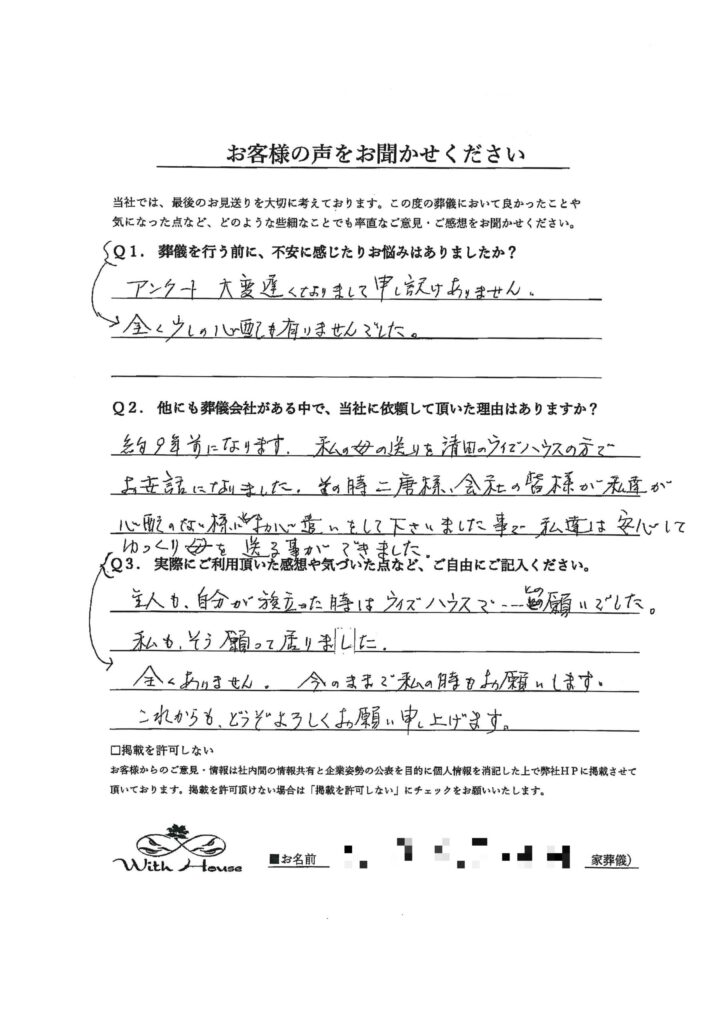 お客様の声をお聞かせください
当社では、最後のお見送りを大切に考えております。この度の葬儀において良かったことや
気になった点など、どのような些細なことでも率直なご意見・ご感想をお聞かせください。
Q1. 葬儀を行う前に、不安に感じたりお悩みはありましたか？
アンケート 大変遅くなりまして申し訳ありません。
全く少しの心配も有りませんでした。
Q2. 他にも葬儀会社がある中で、当社に依頼して頂いた理由はありますか？
約9年前になります. 私の母の送りを清田のウイズハウスの方で
お世話になりました. その時二唐様、会社の皆様が私達が
心配のない様にお心遣いをして下さいました事で 私達は安心して
ゆっくり母を送る事ができました.
Q3. 実際にご利用頂いた感想や気づいた点など、ご自由にご記入ください。
主人も、自分が旅立った時はウイズハウスで……との願いでした。
私も、そう願って居りました.
全くありません. 今のままで私の時もお願いします.
これからも、どうぞよろしくお願い申し上げます。
□掲載を許可しない
お客様からのご意見・情報は社内間の情報共有と企業姿勢の公表を目的に個人情報を消記した上で弊社HPに掲載させて
頂いております。掲載を許可頂けない場合は「掲載を許可しない」にチェックをお願いいたします。
With House
■お名前 家葬儀）